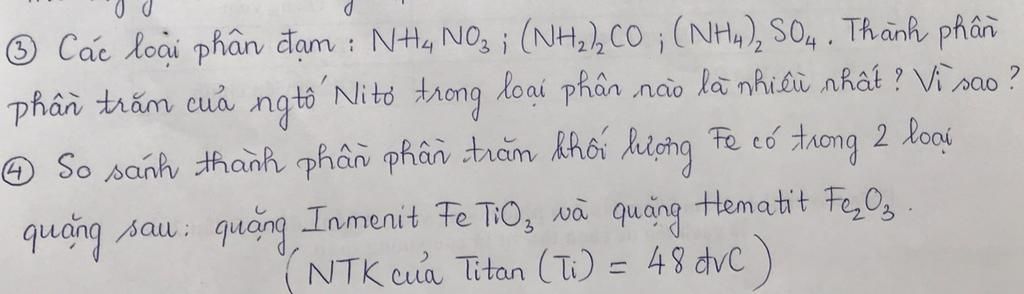 ③ Các loại phân đạm : NH₄NO₃ ; (NH₂)₂CO ; (NH₄)₂SO₄. Thành phần
phần trăm của ngtố Nitơ trong loại phân nào là nhiều nhất ? Vì sao ?
④ So sánh thành phần phần trăm khối lượng Fe có trong 2 loại
quặng sau: quặng Inmenit FeTiO₃ và quặng Hematit Fe₂O₃.
(NTK của Titan (Ti) = 48 đvC)